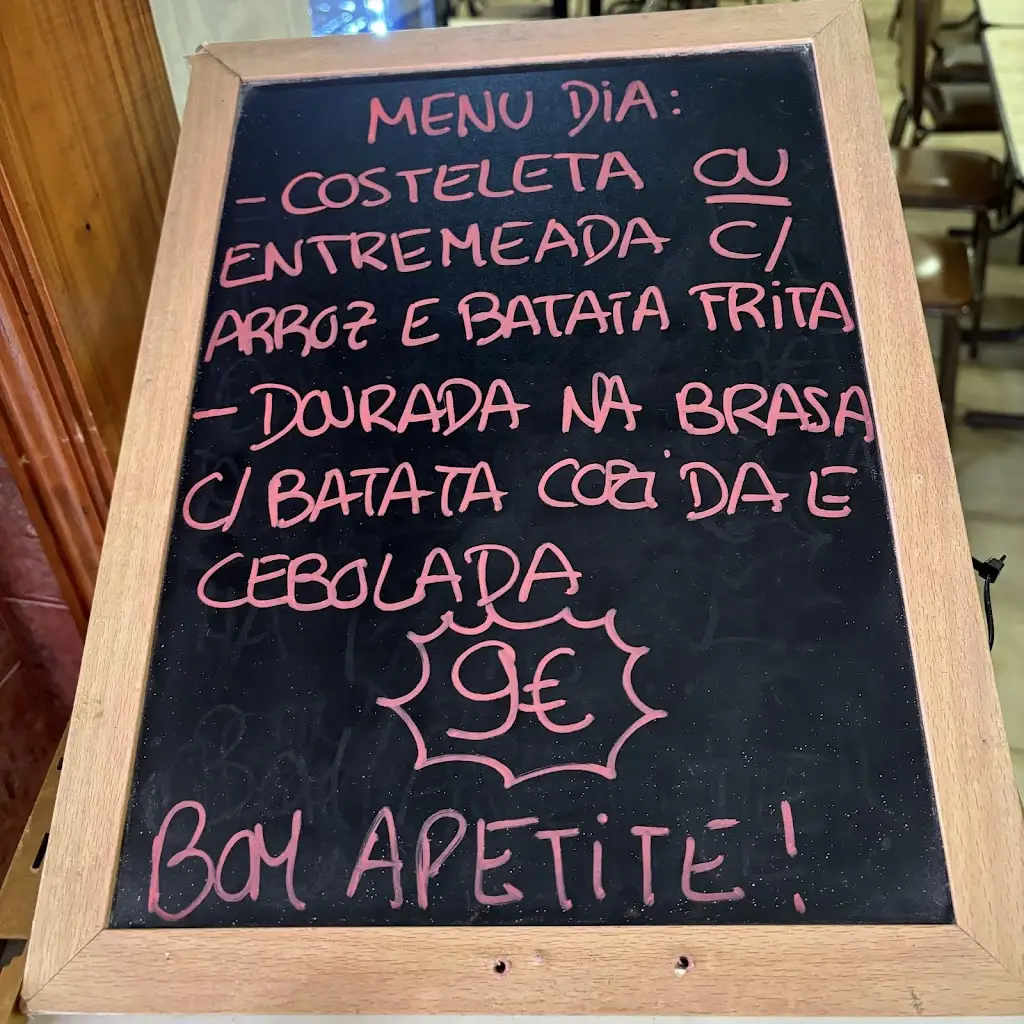 MENU DIA:
- COSTELETA OU
ENTREMEADA C/
ARROZ E BATATA FRITA
- DOURADA NA BRASA
C/ BATATA COZIDA E
CEBOLADA
9€
BOM APETITE!